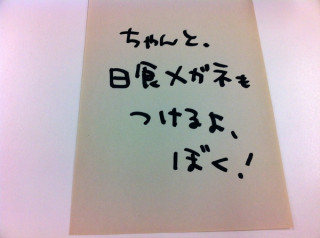 ちゃんと、
日食メガネも
つけるよ、
ぼく!